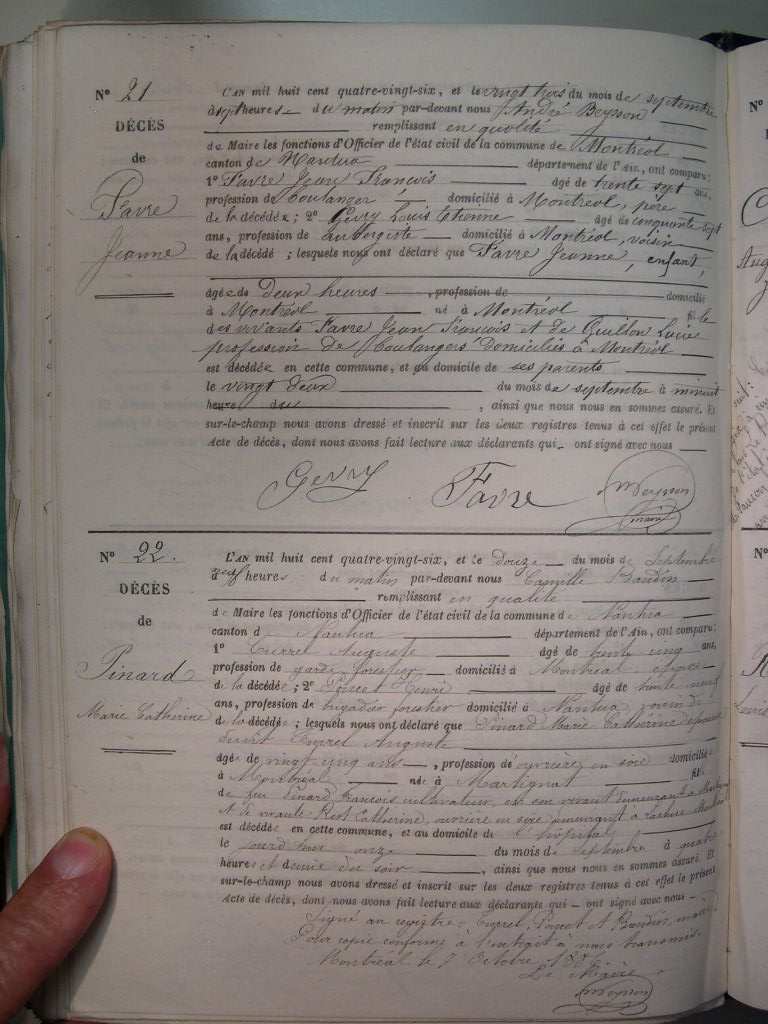 N° 21
DÉCÈS
de
Favre
Jeanne
L'AN mil huit cent quatre-vingt-six, et le vingt trois du mois de septembre
à sept heures du matin par-devant nous André Beysson
remplissant en qualité
de Maire les fonctions d'Officier de l'état civil de la commune de Montréal
canton de Nantua département de l'Ain, ont comparu:
1° Favre Jean François âgé de trente sept ans,
profession de boulanger, domicilié à Montréal, père
de la décédée; 2° Gevry Louis Etienne âgé de cinquante sept
ans, profession de aubergiste domicilié à Montréal, voisin
de la décédé; lesquels nous ont déclaré que Favre Jeanne, enfant,
âgée de deux heures, profession de domicilié
à Montréal né à Montréal fille
des vivants Favre Jean François et de Guillon Lucie
profession de boulangers Domiciliés à Montréal
est décédée en cette commune, et au domicile de ses parents
le vingt deux du mois de septembre à minuit
heure du , ainsi que nous nous en sommes assuré. Et
sur-le-champ nous avons dressé et inscrit sur les deux registres tenus à cet effet le présent
Acte de décès, dont nous avons fait lecture aux déclarants qui ont signé avec nous
Gevry Favre Beysson
maire
N° 22.
DÉCÈS
de
Pinard
Marie Catherine
L'AN mil huit cent quatre-vingt-six, et le douze du mois de Septembre
à neuf heures du matin par-devant nous Camille Baudin
remplissant en qualité
de Maire les fonctions d'Officier de l'état civil de la commune de Nantua
canton de Nantua département de l'Ain, ont comparu:
1° Auguste âgé de trente cinq ans,
profession de garde forestier domicilié à Montréal époux
de la décédée; 2° Henri âgé de trente neuf
ans, profession de brigadier forestier domicilié à Nantua
de la décédée; lesquels nous ont déclaré que Pinard Marie Catherine épouse
Auguste
âgée de vingt cinq ans, profession de ouvrière en soie domiciliée
à Montréal née à Martignat fille
de feu Pinard François cultivateur, en son vivant demeurant à
et de vivante Catherine, ouvrière en soie demeurant à
est décédée en cette commune, et au domicile de l'hôpital
le onze du mois de septembre à quatre
heures et demie du soir, ainsi que nous nous en sommes assuré. Et
sur-le-champ nous avons dressé et inscrit sur les deux registres tenus à cet effet le présent
Acte de décès, dont nous avons fait lecture aux déclarants qui ont signé avec nous
Signé au registre: et Baudin, maire
Pour copie conforme à l'extrait à nous transmis.
Montréal le 7 Octobre 1886
Le Maire
Beysson